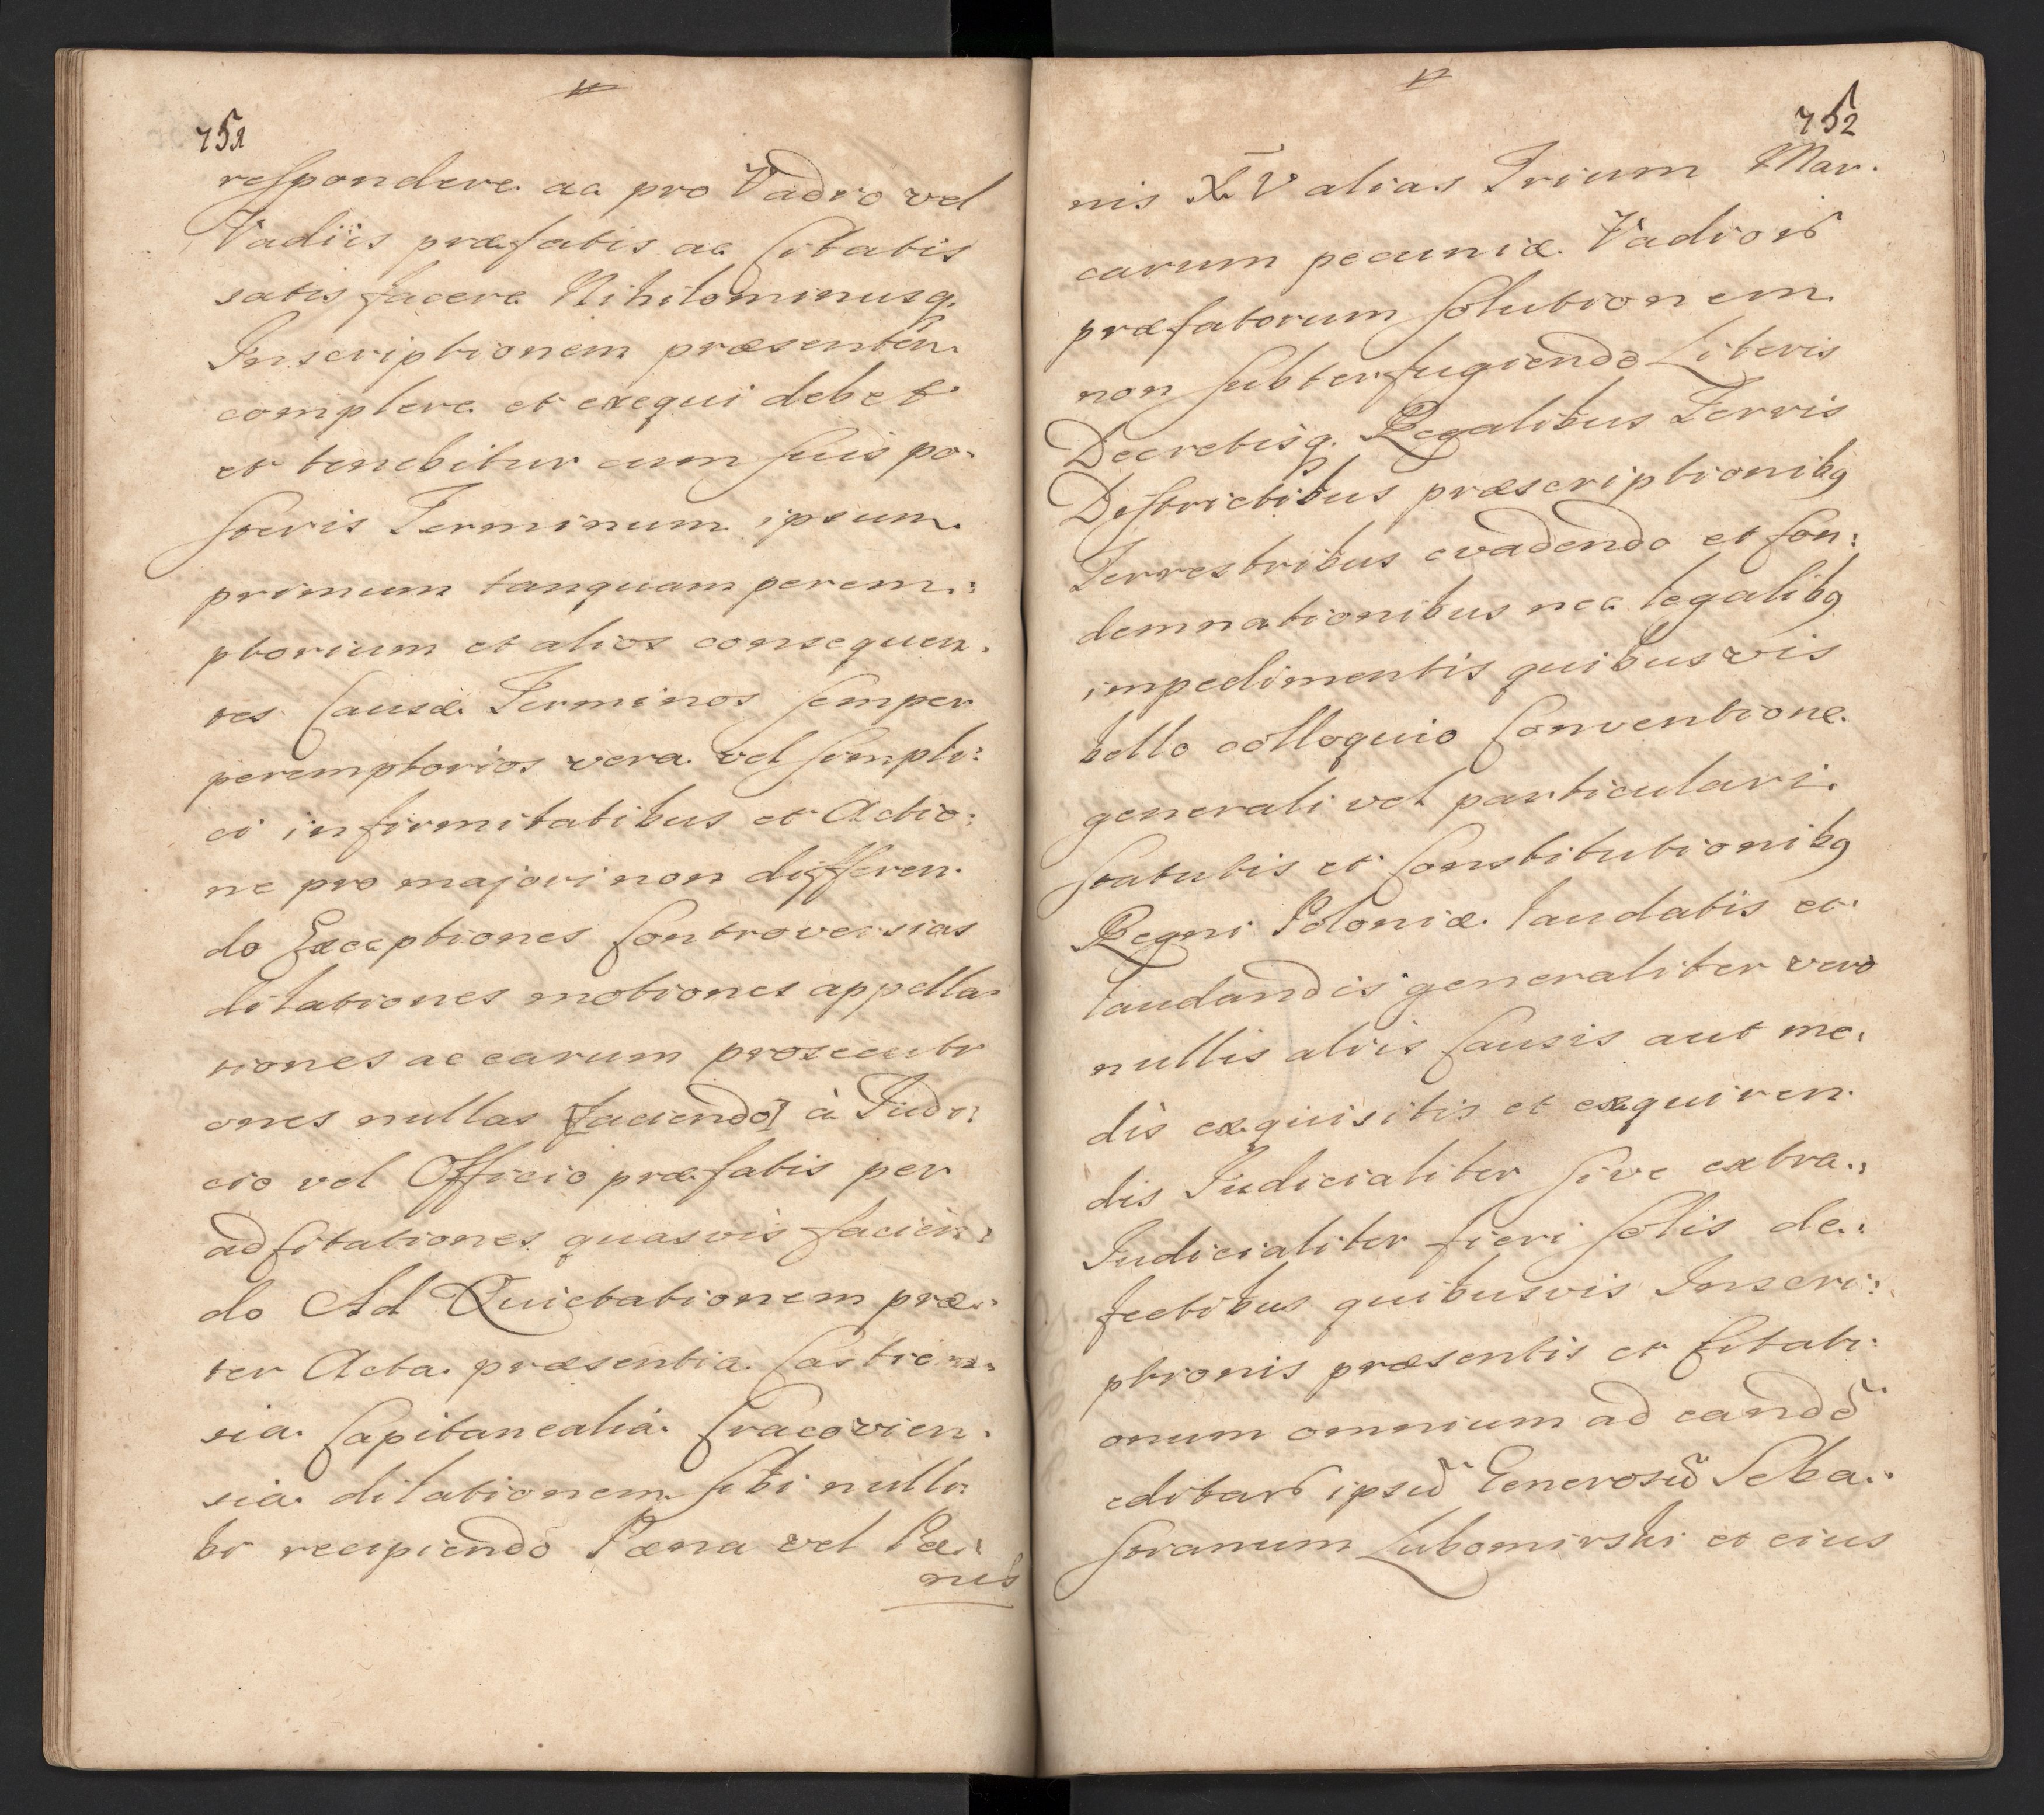 751
respondere ac pro Vadio vel
Vadiis præfatis ac Citatis
satisfacere Nihilominusq.
Inscriptionem præsentem
complere et exequi debet
et tenebitur cum suis po-
steris Terminum ipsum
primum tanquam perem:
ptorium et alios consequen-
tes Causæ Terminos semper
peremptorios vera vel simpli:
ci infirmitatibus et Actio:
ne pro majori non differen-
do Exceptiones Controversias
dilationes motiones appella-
tiones ac earum prosecuti
ones nullas [faciendo] à Judi:
cio vel Officio præfatis per
ad Citationes quasvis facien:
do Ad Quietationem præ:
ter Acta præsentia Castren:
sia Capitanealia Cracovien-
sia dilationem sibi nulli:
bi recipiendo Pæna vel Pæ:
nis
752
nis XV alias Trium Mar-
carum pecuniæ Vadiorū
præfatorum solutionem
non subterfugiendo Literis
Decretisq. Regalibus Ferris
Districtibus præscriptionibq
Terrestribus evadendo et Con:
demnationibus nec legalibq
impedimentis quibusvis
bello colloquio Conventione
generali vel particulari
Statutis et Constitutionibq
Regni Poloniæ laudatis et
laudandis generaliter vero
nullis aliis Causis aut mo:
dis exquisitis et exquiren-
dis Judicialiter sive extra:
Judicialiter fieri solis de:
fectibus quibusvis Inscri:
ptionis præsentis et Citati:
onum omnium ad eandē
editarū ipsū Generosū Seba:
stianum Lubomirski et eius